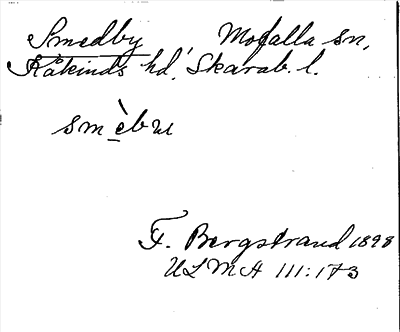 Smedby Mofalla sn,
Kåkinds hd, Skarab. l.
smèbu
F. Bergstrand 1898
ULMA 111:173